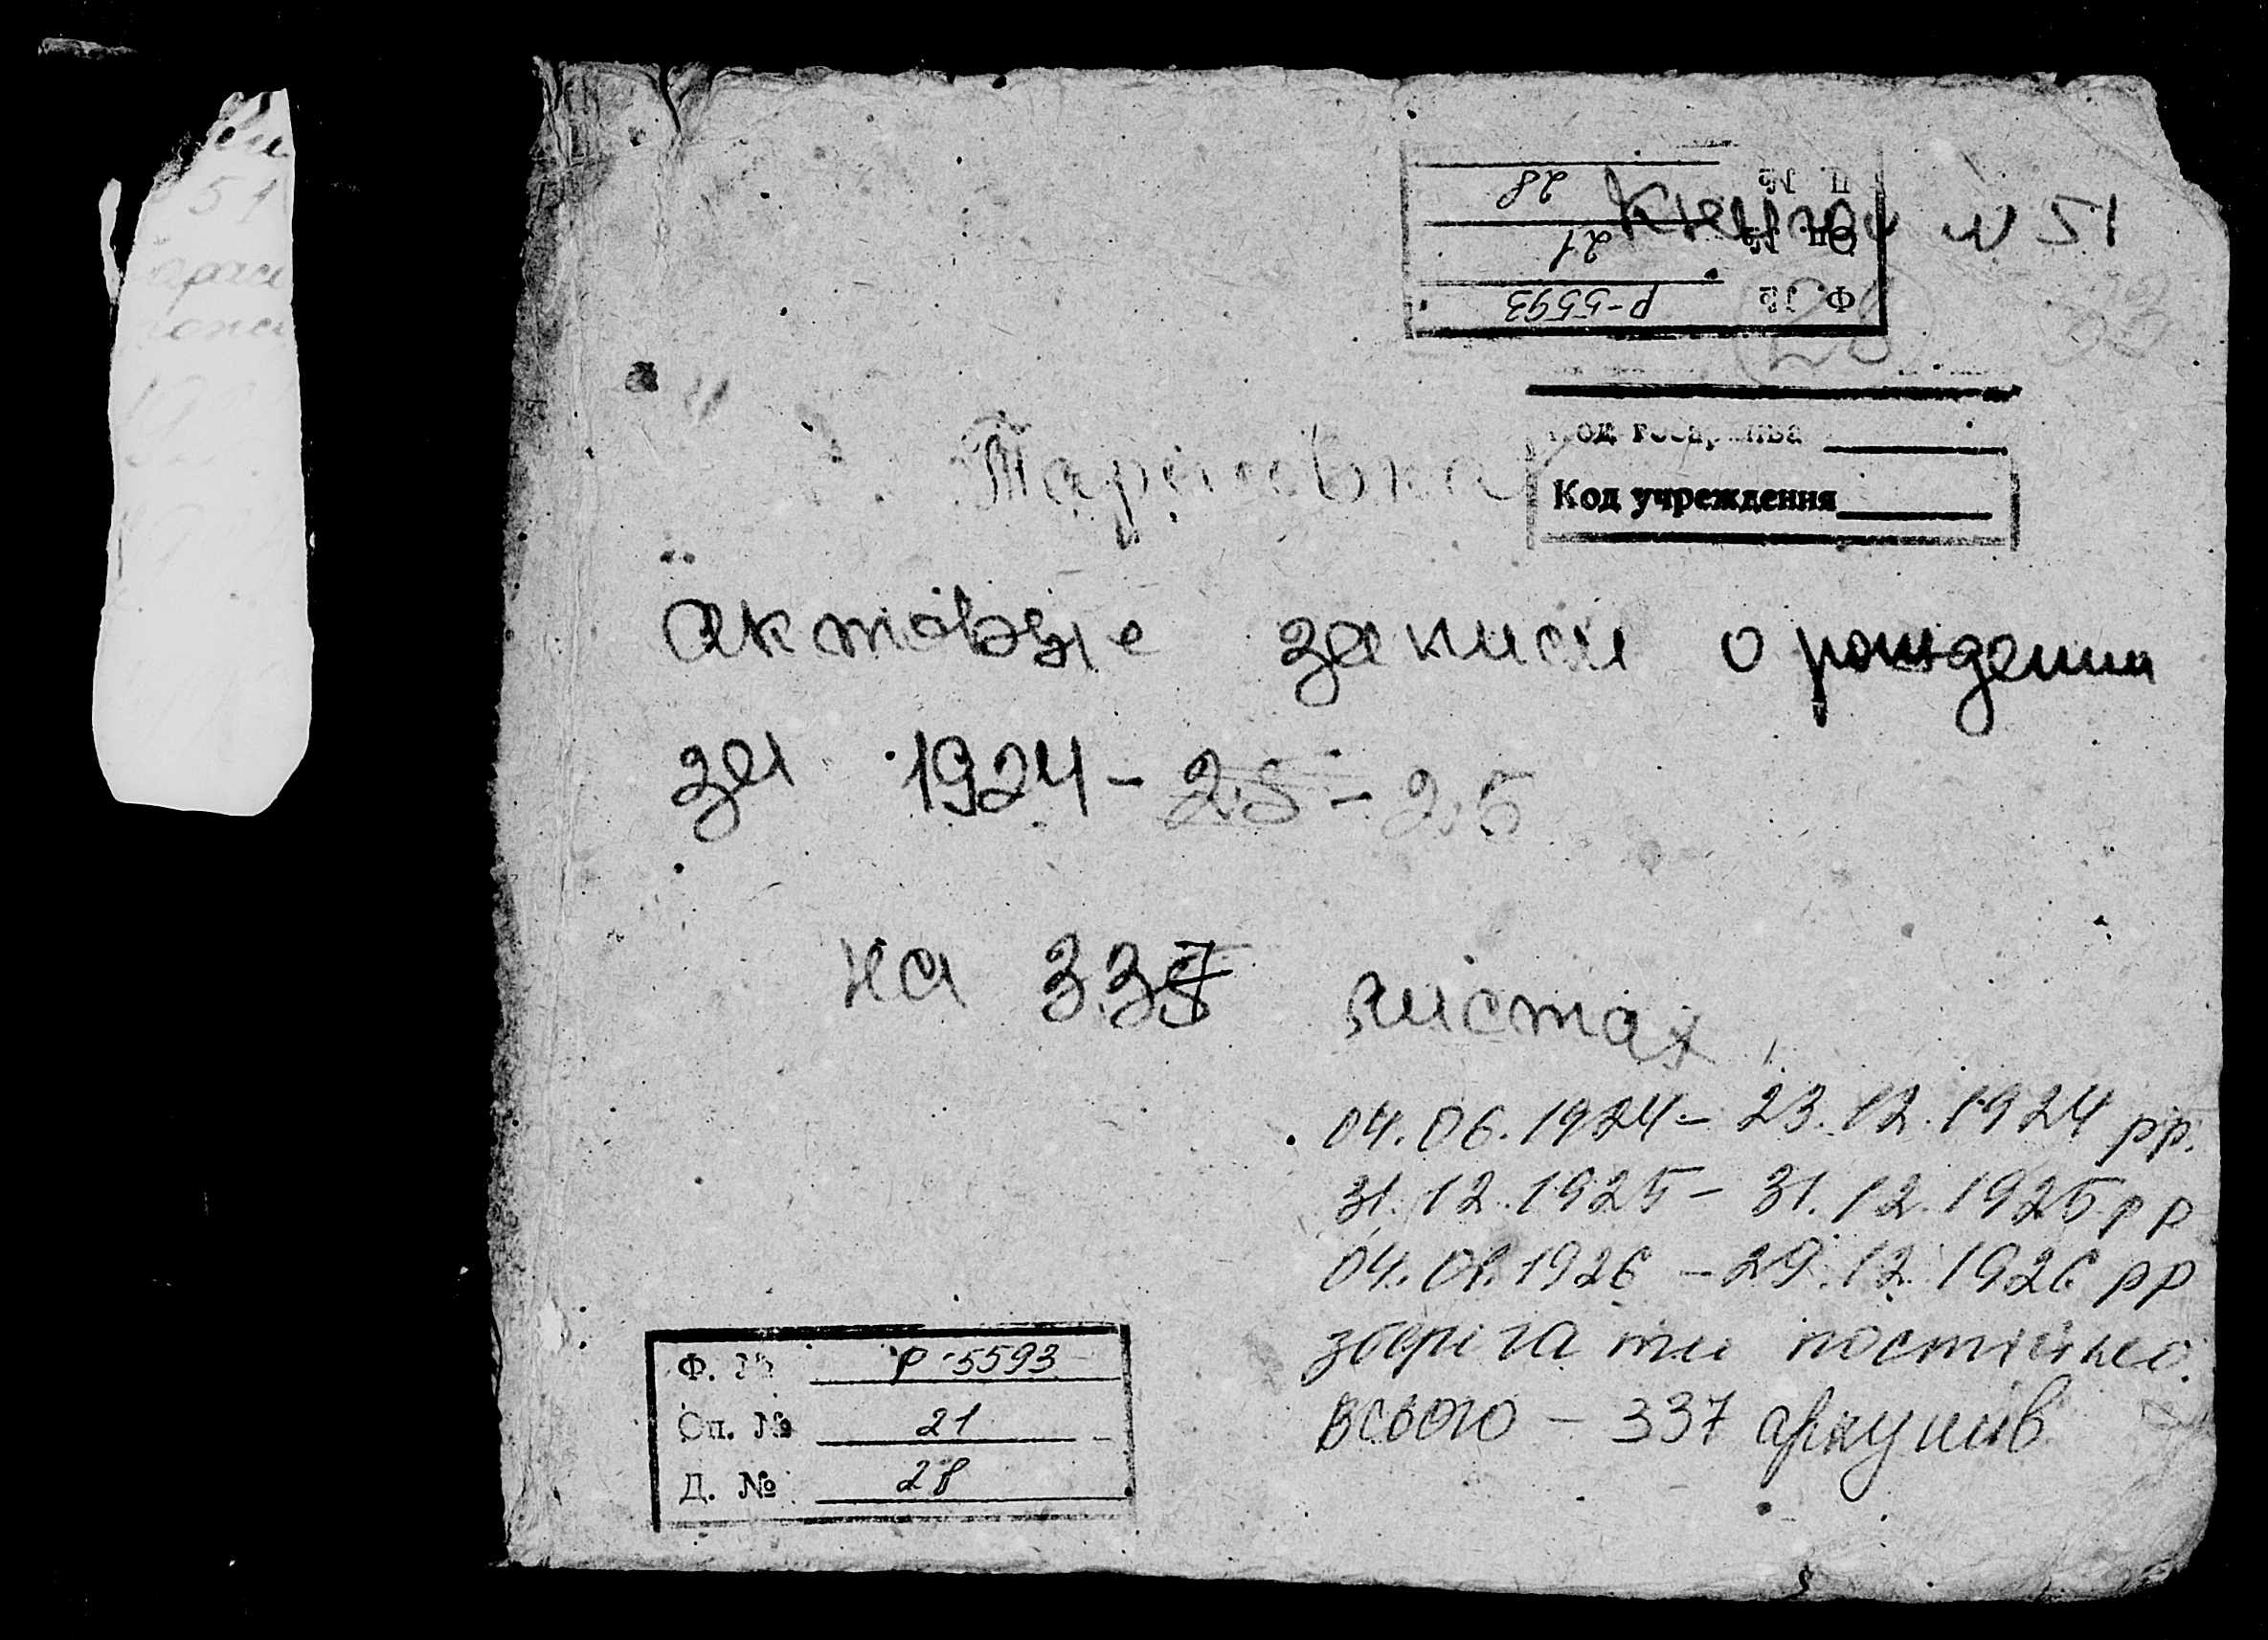 Д. № 28
Оп. № 21
Ф. № Р-5593
Книга № 51
28
Код госархива
Код учреждения
Актовые записи о рождении
за 1924 - 25 - 25
на 337 листах
04.06.1924 - 23.12.1924 рр.
31.12.1925 - 31.12.1925 рр
04.01.1926 - 29.12.1926 рр
зберігати постійно.
Всього - 337 аркушів
Ф. № Р-5593
Оп. № 21
Д. № 28
51